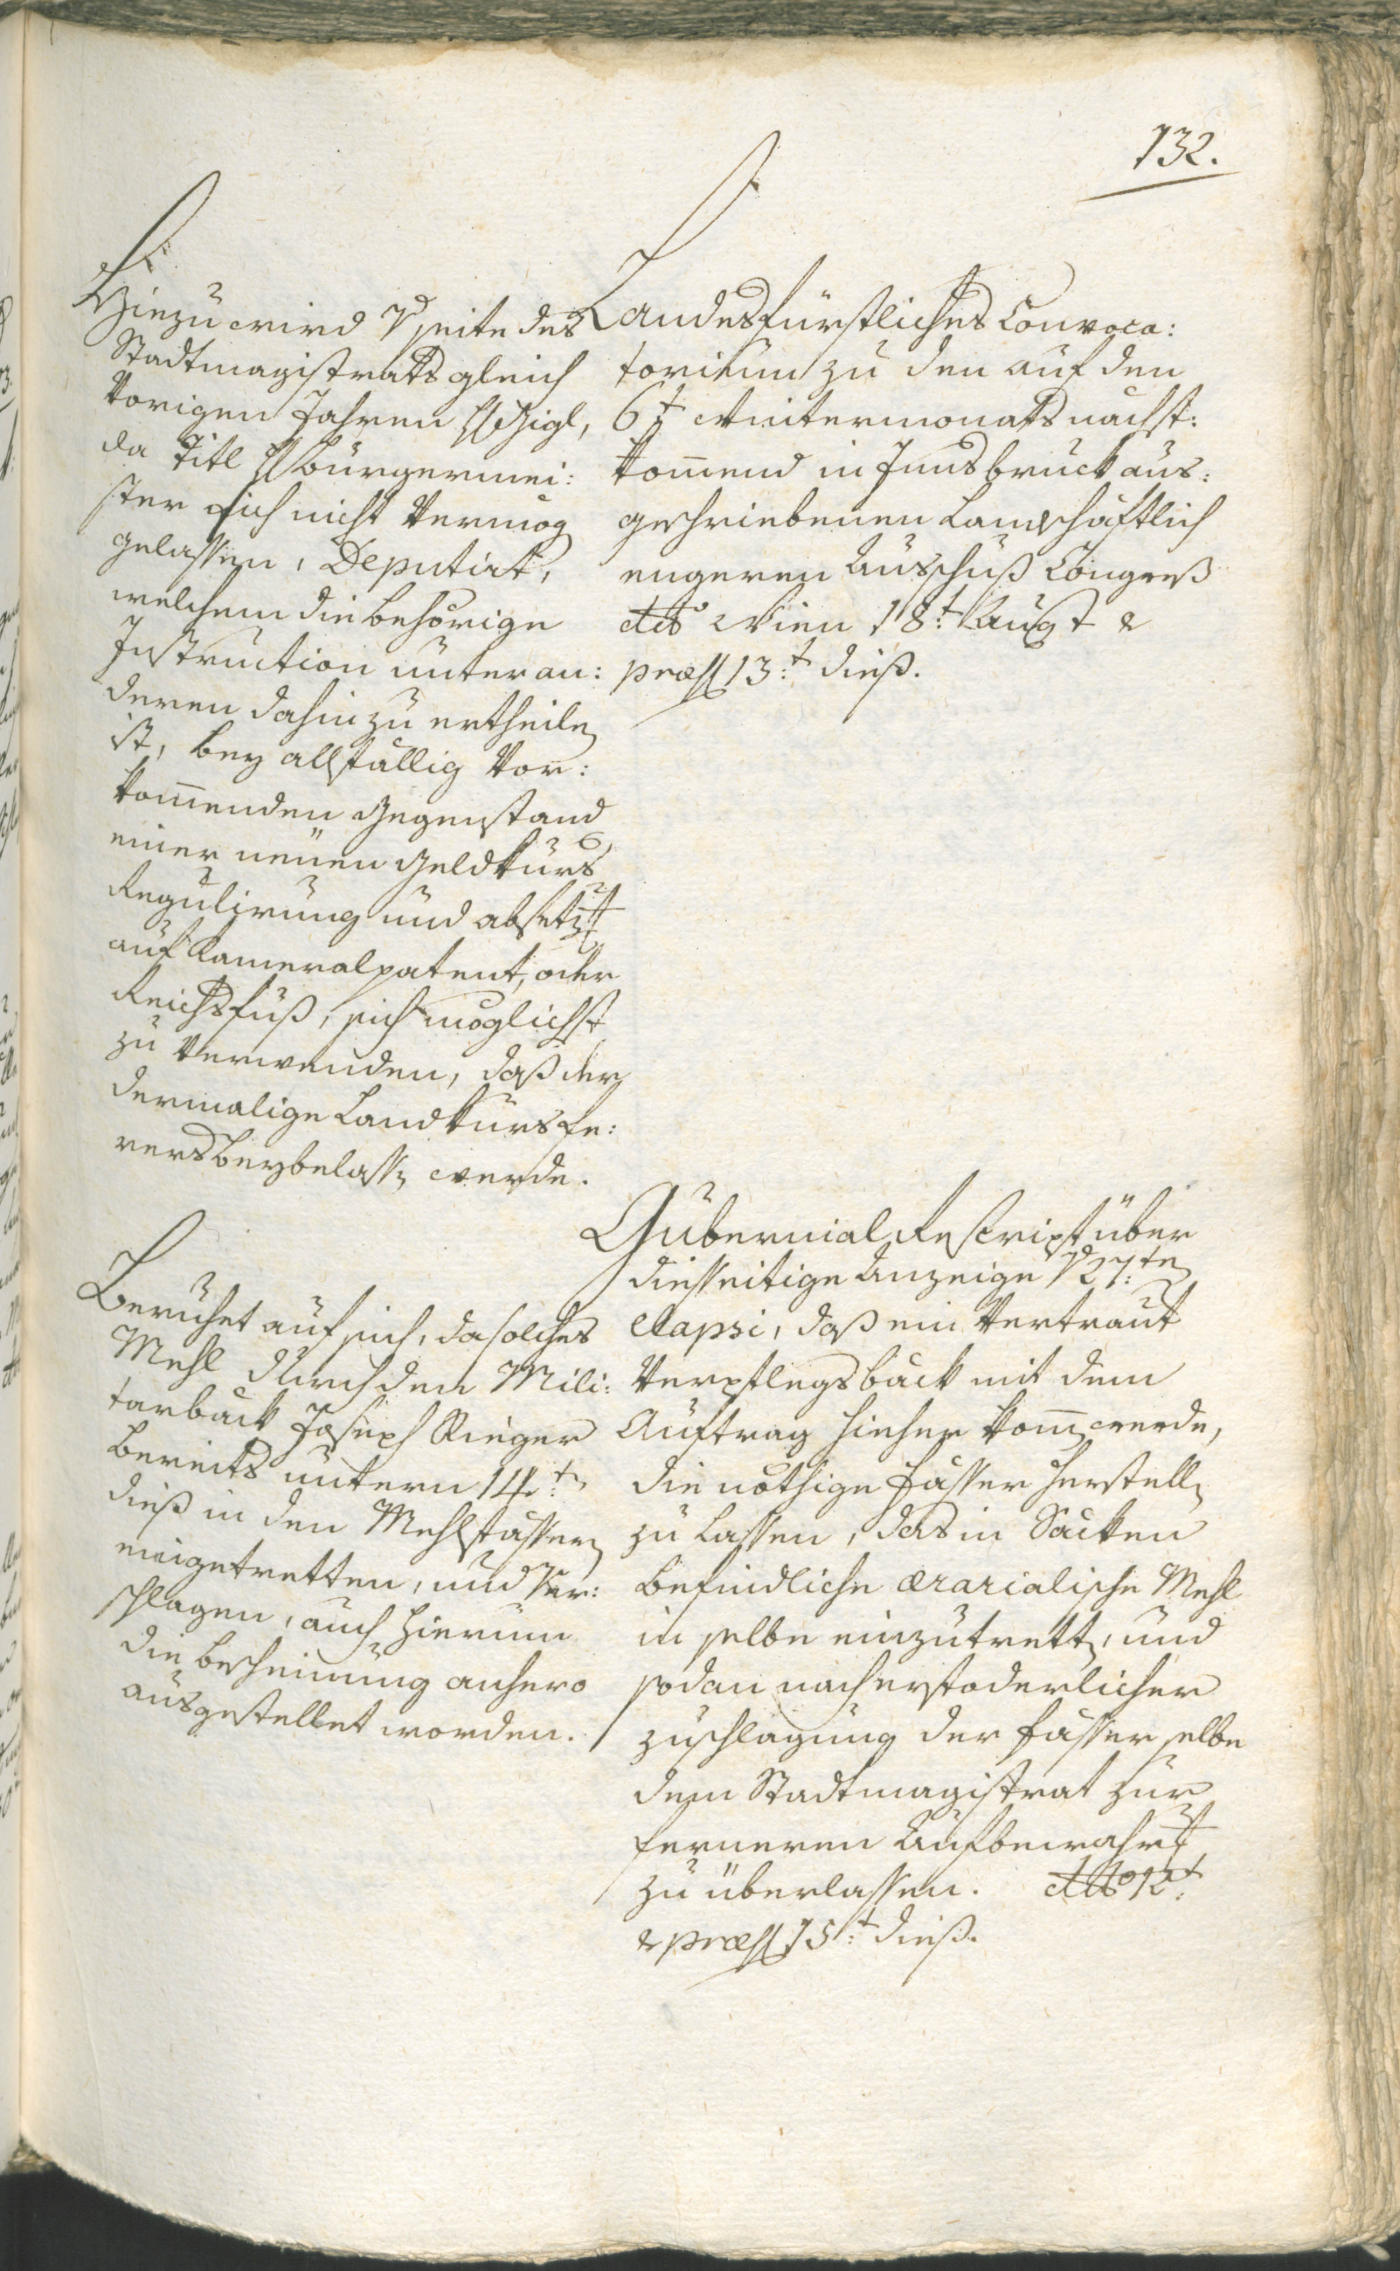 132.
Hiezu wird Seite des
Stadtmagistrats gleich
vorigen Jahren H Gigl,
da Titl H Bürgermei:
ster sich nicht vermög
gelassen, Deputirt,
welchem die behörige
Instruction unter an:
deren dahin zu ertheilen
ist, bey allfällig vor:
kommenden Gegenstand
einer neuen Geldkurs
Regulirung und absetzung
auf Kameralpatent, oder
Reichsfuß, sich möglichst
zu verwenden, daß der
dermalige Landkurs fe:
rers beybelassen werde.
Landesfürstliches Convoca:
torium zu den auf den
6t Wintermonats nächst:
kommend in Innsbruck aus:
geschriebenen Landschäftlich
engeren Ausschuß Congreß
dto Wien 18:t Augt &
præss 13:t dieß.
Beruhet auf sich, da solches
Mehl durch den Mili:
tarbäck Joseph Rieger
bereits untern 14.t
dieß in den Mehlfässern
eingetretten, und ver:
schlagen, auch hierum
die Bescheinung anhero
ausgestellet worden.
Gubernial Rescript über
diesseitige Anzeige 27:ten
elapsi, daß ein vertraut
Verpflegsbäck mit dem
Auftrag hieher kommen werde,
die nöthige Fässer herstellen
zu lassen, das in Säcken
befindliche ærarialische Mehl
in selbe einzutretten, und
sodan nach erfoderlicher
Zuschlagung der Fässer selbe
dem Stadtmagistrat zur
ferneren Aufbewahrung
zu überlassen. dto 12t:
& præss 15:t dieß.